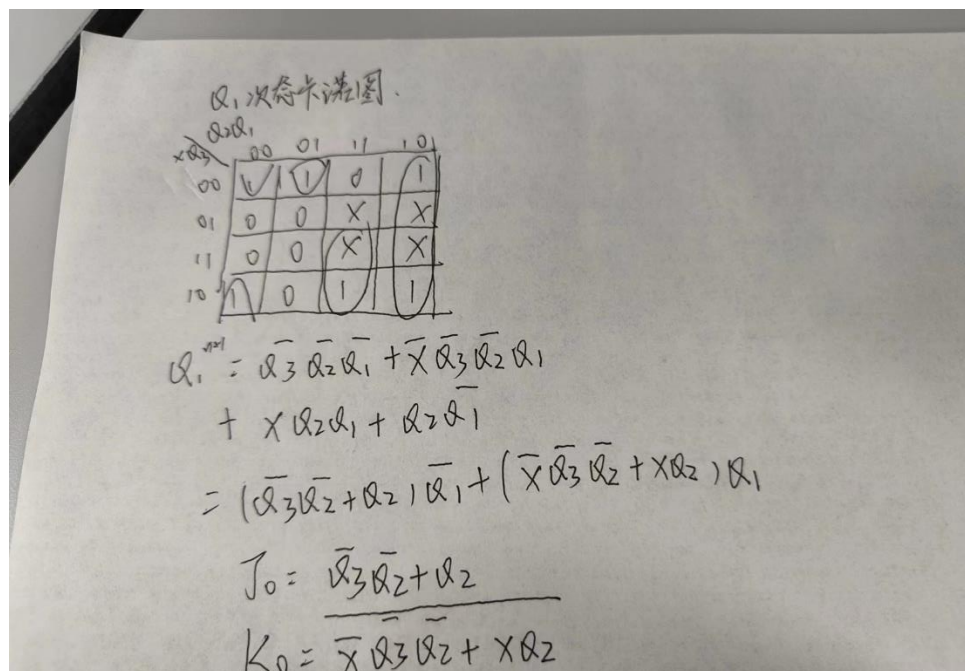 Q₁次态卡诺图.
XQ₃\Q₂Q₁ 00 01 11 10
00 1 1 0 1
01 0 0 X X
11 0 0 X X
10 1 0 1 1
Q₁ⁿ⁺¹ = Q̅₃Q̅₂Q̅₁ + X̅Q̅₃Q̅₂Q₁
+ XQ₂Q₁ + Q₂Q̅₁
= (Q̅₃Q̅₂+Q₂)Q̅₁ + (X̅Q̅₃Q̅₂+XQ₂)Q₁
J₀ = Q̅₃Q̅₂+Q₂
K₀ = \overline{X̅Q̅₃Q̅₂+XQ₂}